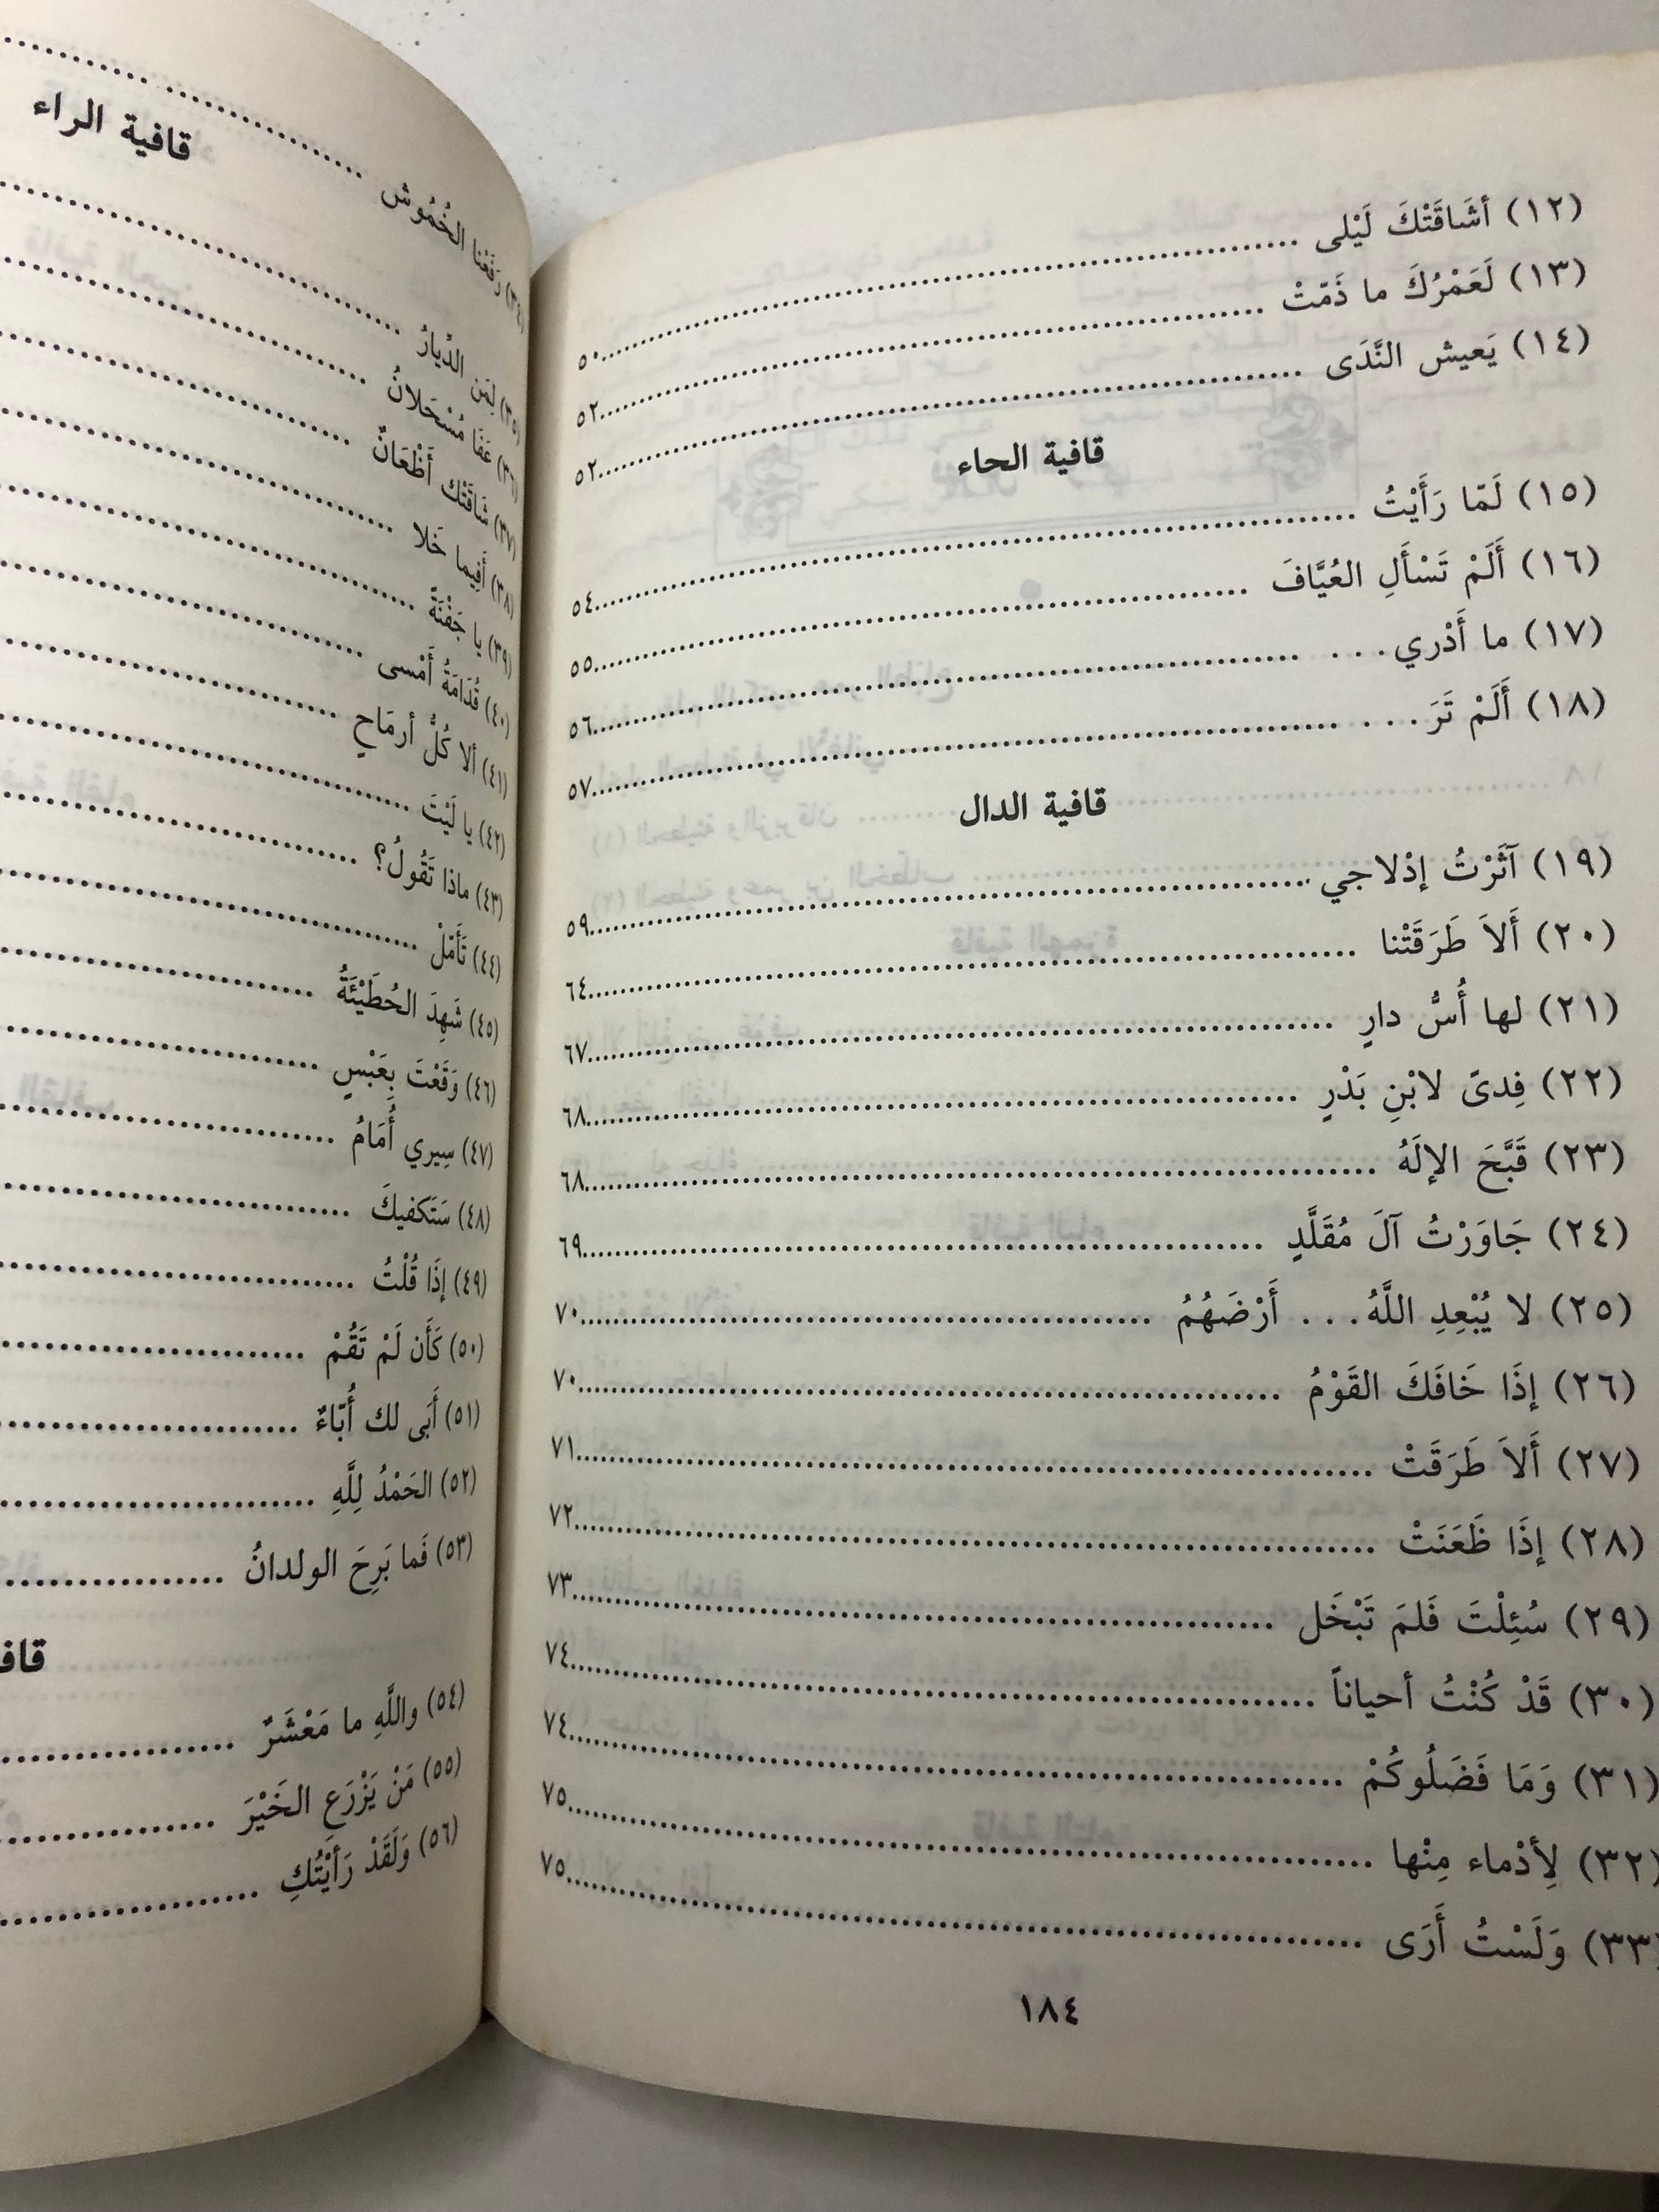 (١٢) أشَاقَتْكَ لَيْلى ........ ٥٠
(١٣) لَعَمْرُكَ ما ذَمّتْ ........ ٥٢
(١٤) يَعيش النَّدَى ........ ٥٢
قافية الحاء
(١٥) لَمّا رَأَيْتُ ........ ٥٤
(١٦) أَلَمْ تَسْأَلِ العُيَّافَ ........ ٥٥
(١٧) ما أَدْري... ........ ٥٦
(١٨) أَلَمْ تَرَ... ........ ٥٧
قافية الدال
(١٩) آثَرْتُ إدْلاجي ........ ٥٩
(٢٠) أَلاَ طَرَقَتْنا ........ ٦٤
(٢١) لها أُسُّ دارٍ ........ ٦٧
(٢٢) فِدىً لابْنِ بَدْرٍ ........ ٦٨
(٢٣) قَبَّحَ الإلَهُ ........ ٦٨
(٢٤) جَاوَرْتُ آلَ مُقَلَّدٍ ........ ٦٩
(٢٥) لا يُبْعِدِ اللَّهُ... أَرْضَهُمُ ........ ٧٠
(٢٦) إذَا خَافَكَ القَوْمُ ........ ٧٠
(٢٧) أَلاَ طَرَقَتْ ........ ٧١
(٢٨) إذَا ظَعَنَتْ ........ ٧٢
(٢٩) سُئِلْتَ فَلمَ تَبْخَل ........ ٧٣
(٣٠) قَدْ كُنْتُ أحياناً ........ ٧٤
(٣١) وَمَا فَضَلُوكُمْ ........ ٧٤
(٣٢) لِأدْماء مِنْها ........ ٧٥
(٣٣) وَلَسْتُ أَرَى ........ ٧٥
١٨٤
(٣٤) رَفَعْنا الخُمُوش ........
قافية الراء
(٣٥) لِمَن الدِّيارُ ........
(٣٦) عَفَا مُسْحَلانُ ........
(٣٧) شَاقَتْك أَظْعَانٌ ........
(٣٨) أَفِيما خَلا ........
(٣٩) يا جَفْنَةً ........
(٤٠) قُدَامَةُ أَمْسى ........
(٤١) ألا كُلُّ أرمَاحٍ ........
(٤٢) يا لَيْتَ ........
(٤٣) ماذا تَقُولُ؟ ........
(٤٤) تَأَمّلْ ........
(٤٥) شَهِدَ الحُطَيْئَةُ ........
(٤٦) وَقَعْتَ بِعَبْسٍ ........
(٤٧) سِيري أُمَامُ ........
(٤٨) سَتَكفيكَ ........
(٤٩) إذَا قُلْتُ ........
(٥٠) كَأَن لَمْ تَقُمْ ........
(٥١) أَبَى لك أُبّاءٌ ........
(٥٢) الحَمْدُ لِلَّهِ ........
(٥٣) فَما بَرِحَ الولدانُ ........
(٥٤) واللَّهِ ما مَعْشَرٌ ........
(٥٥) مَنْ يَزْرَعِ الخَيْرَ ........
(٥٦) وَلَقَدْ رَأَيْتُكِ ........